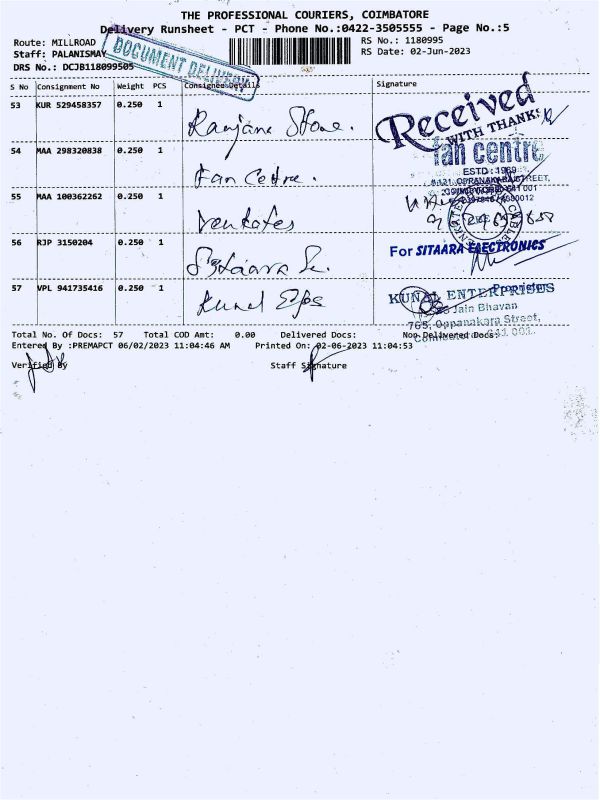 THE PROFESSIONAL COURIERS, COIMBATORE
Delivery Runsheet - PCT - Phone No.:0422-3505555 - Page No.:5
Route: MILLROAD
RS No.: 1180995
Staff: PALANISMAY
RS Date: 02-Jun-2023
DRS No.: DCJB118099505
DOCUMENT DELIVERY
S No Consignment No Weight PCS Consignee Details Signature
53 KUR 529458357 0.250 1 Ranjana Store.
Received
WITH THANKS
54 MAA 298320838 0.250 1 Fan Centre.
fan centre
ESTD: 1989
55 MAA 100362262 0.250 1 Venkates
56 RJP 3150204 0.250 1
For SITAARA ELECTRONICS
Proprietor
57 VPL 941735416 0.250 1 Kunal
KUNAL ENTERPRISES
Jain Bhavan
765, Oppanakara Street,
Total No. Of Docs: 57 Total COD Amt: 0.00 Delivered Docs: Non Delivered Docs:
Entered By :PREMAPCT 06/02/2023 11:04:46 AM Printed On: 02-06-2023 11:04:53
Verified By
Staff Signature